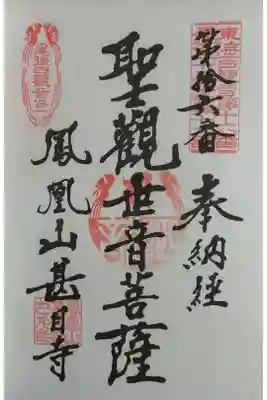 奉納経
第拾六番
聖觀世音菩薩
鳳凰山甚目寺